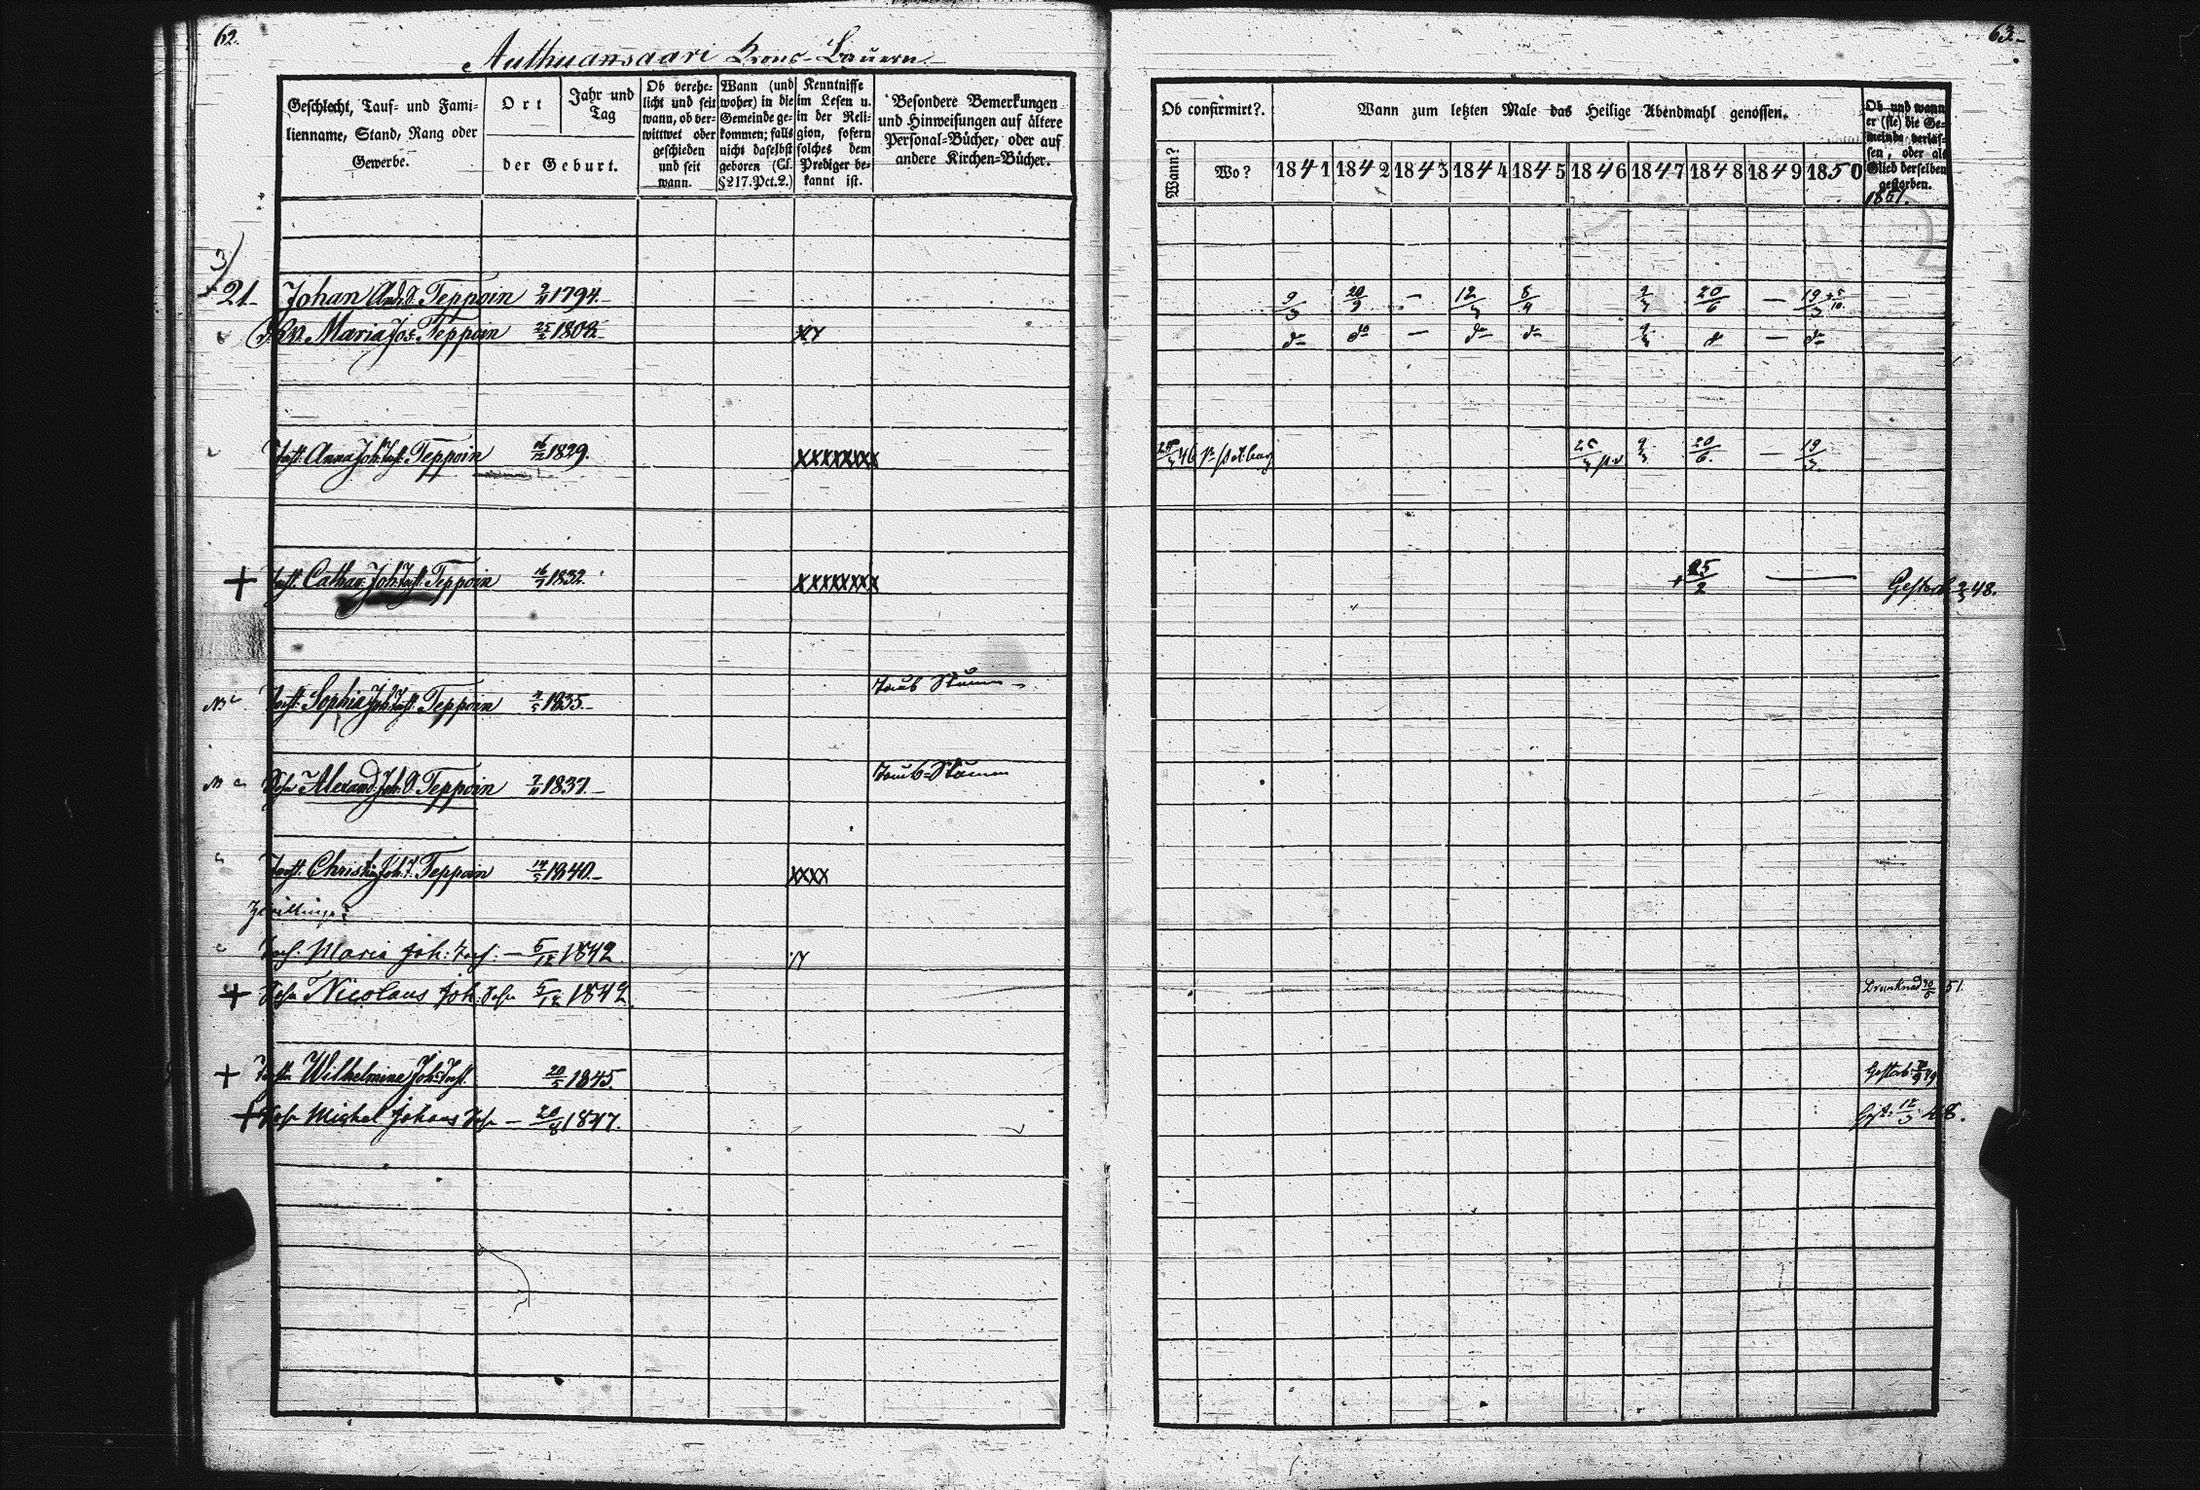 62.
Authuansaari Krons-Bauern
Geschlecht, Tauf- und Fami-
lienname, Stand, Rang oder
Gewerbe.
Ort
Jahr und
Tag
der Geburt.
Ob verehe-
licht und seit
wann, ob ver-
wittwet oder
geschieden
und seit
wann.
Wann (und
woher) in die
Gemeinde ge-
kommen; falls
nicht daselbst
geboren (Cf.
§217.Pct.2.)
Kenntnisse
im Lesen u.
in der Reli-
gion, sofern
solches dem
Prediger be-
kannt ist.
Besondere Bemerkungen
und Hinweisungen auf ältere
Personal-Bücher, oder auf
andere Kirchen-Bücher.
3/
21. Johan And. S. Teppoin 9/11 1794.
Maria Jos. Teppoin 25/2 1802. XY
Tocht. Anna Joh. Tocht. Teppoin 16/12 1829. XXXXXXXX
+ Tocht. Cathar. Joh. Tocht. Teppoin 16/7 1832. XXXXXXXX
Tocht. Sophia Joh. Tocht. Teppoin 1835. Taub Stumm
Sohn Alexand. Joh. S. Teppoin 7/11 1837. Taub-Stumm
Tocht. Christin Joh. T. Teppoin 14/5 1840. XXXX
Zwillinge:
Toch: Maria Joh: Toch: — 5/12 1842
+ Sohn Nicolaus Joh: Sohn 5/12 1842
+ Wilhelmine Joh: Tocht. 20/5 1845.
+ Sohn Michel Johans Sohn — 20/8 1847.
63.
Ob confirmirt?.
Wann?
Wo?
Wann zum letzten Male das Heilige Abendmahl genossen.
1841 1842 1843 1844 1845 1846 1847 1848 1849 1850
Ob und wann
er (sie) die Ge-
meinde verlas-
sen, oder als
Glied derselben
gestorben.
1851.
9/3 20/9 — 12/3 8/4 2/3 20/6 — 19/3
do do — do do 2/3 do — do
25/3 46 25/3 2/3 20/6. — 19/3
+ 25/2 — Gestorb 2/3 48.
51.
Gestorb. 49
Gest. 12/3 48.